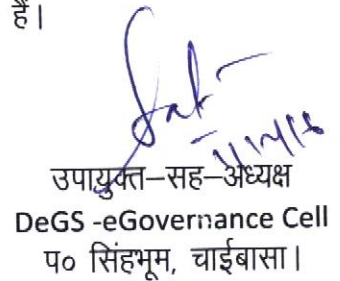 हैं।
उपायुक्त–सह–अध्यक्ष
DeGS -eGovernance Cell
प० सिंहभूम, चाईबासा।